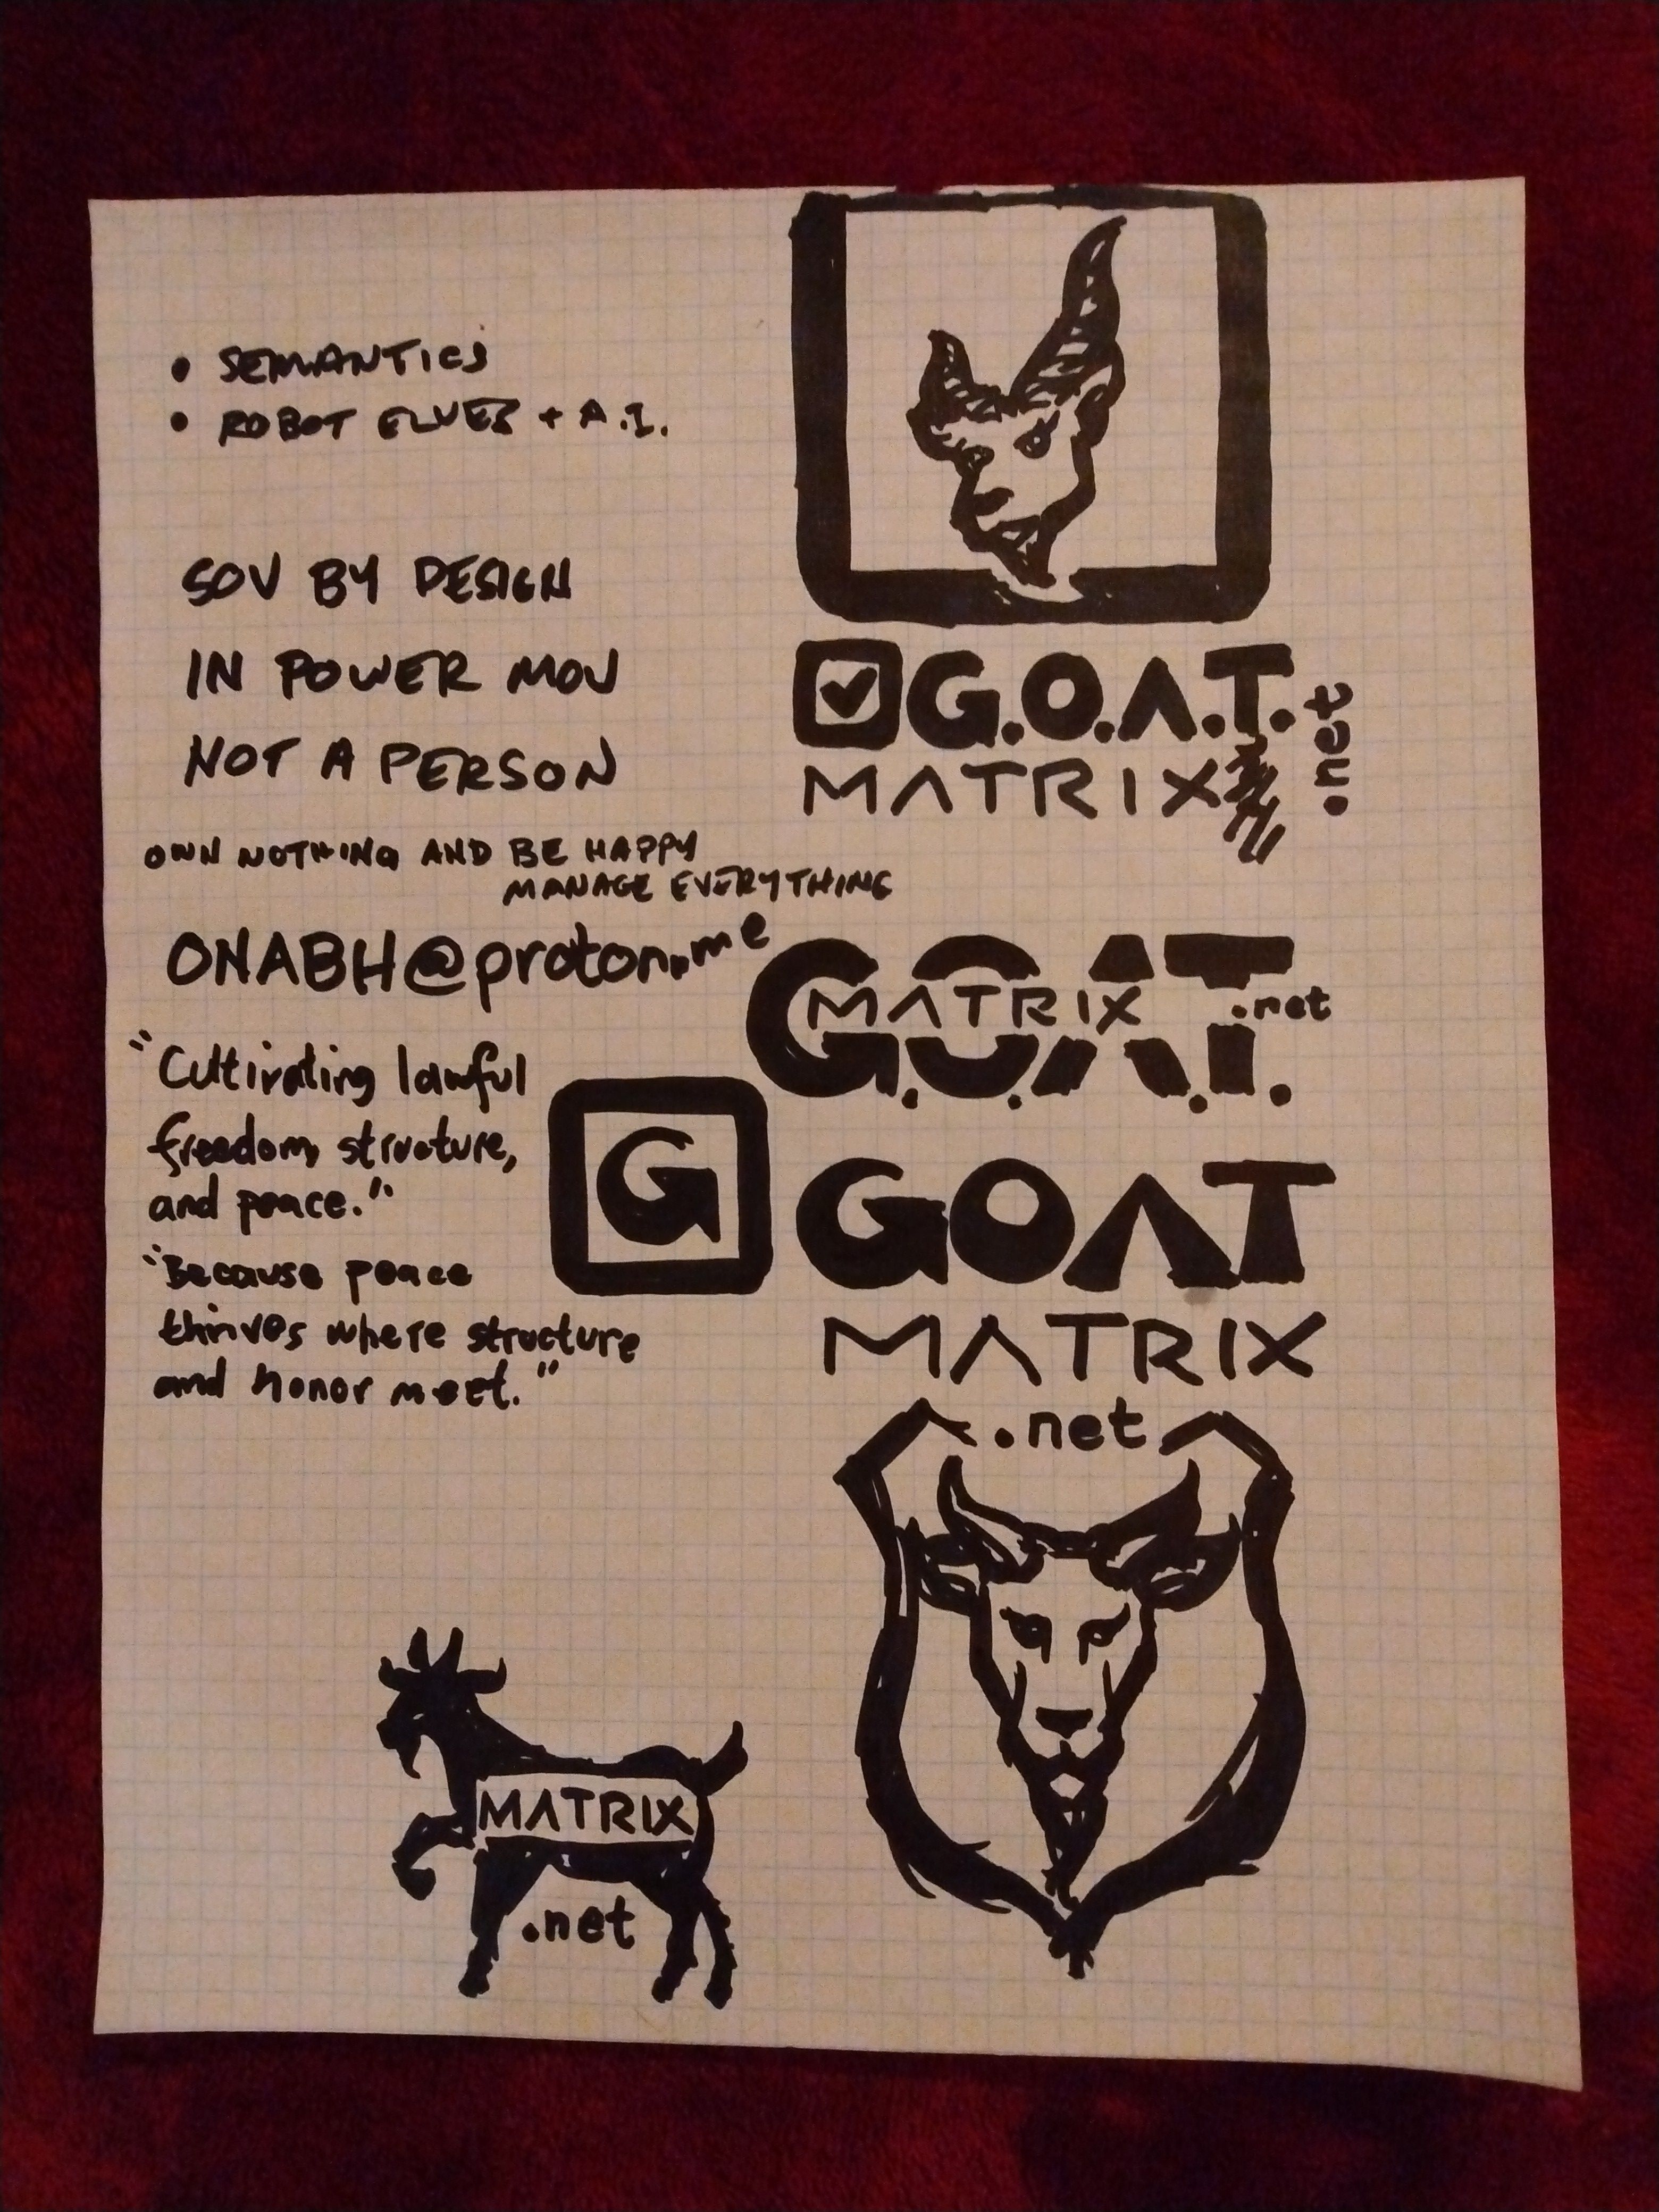 • SEMANTICS
• ROBOT ELVES + A.I.
SOV BY DESIGN
IN POWER MOV
NOT A PERSON
OWN NOTHING AND BE HAPPY
MANAGE EVERYTHING
ONABH@proton.me
"Cultivating lawful
freedom, structure,
and peace."
"Because peace
thrives where structure
and honor meet."
G.O.A.T.
MATRIX
.net
G.O.A.T.
MATRIX .net
G
GOAT
MATRIX
.net
MATRIX
.net